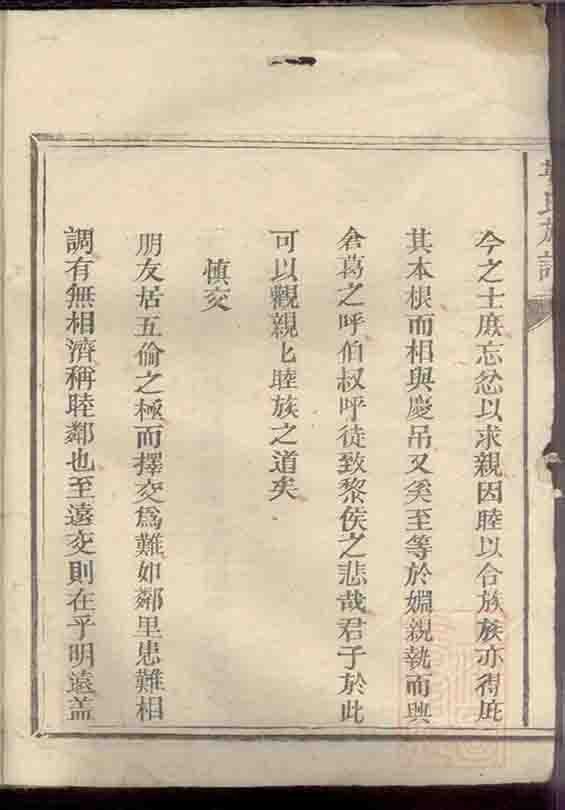 今之士庶忘忿以求親因睦以合族族亦得庇
其本根而相與慶吊又奚至等於婣親執而興
侖葛之呼伯叔呼徒致黎侯之悲哉君子於此
可以觀親匕睦族之道矣
慎交
朋友居五倫之極而擇交為難如鄰里患難相
調有無相濟稱睦鄰也至遠交則在乎明遠盖
氏族譜